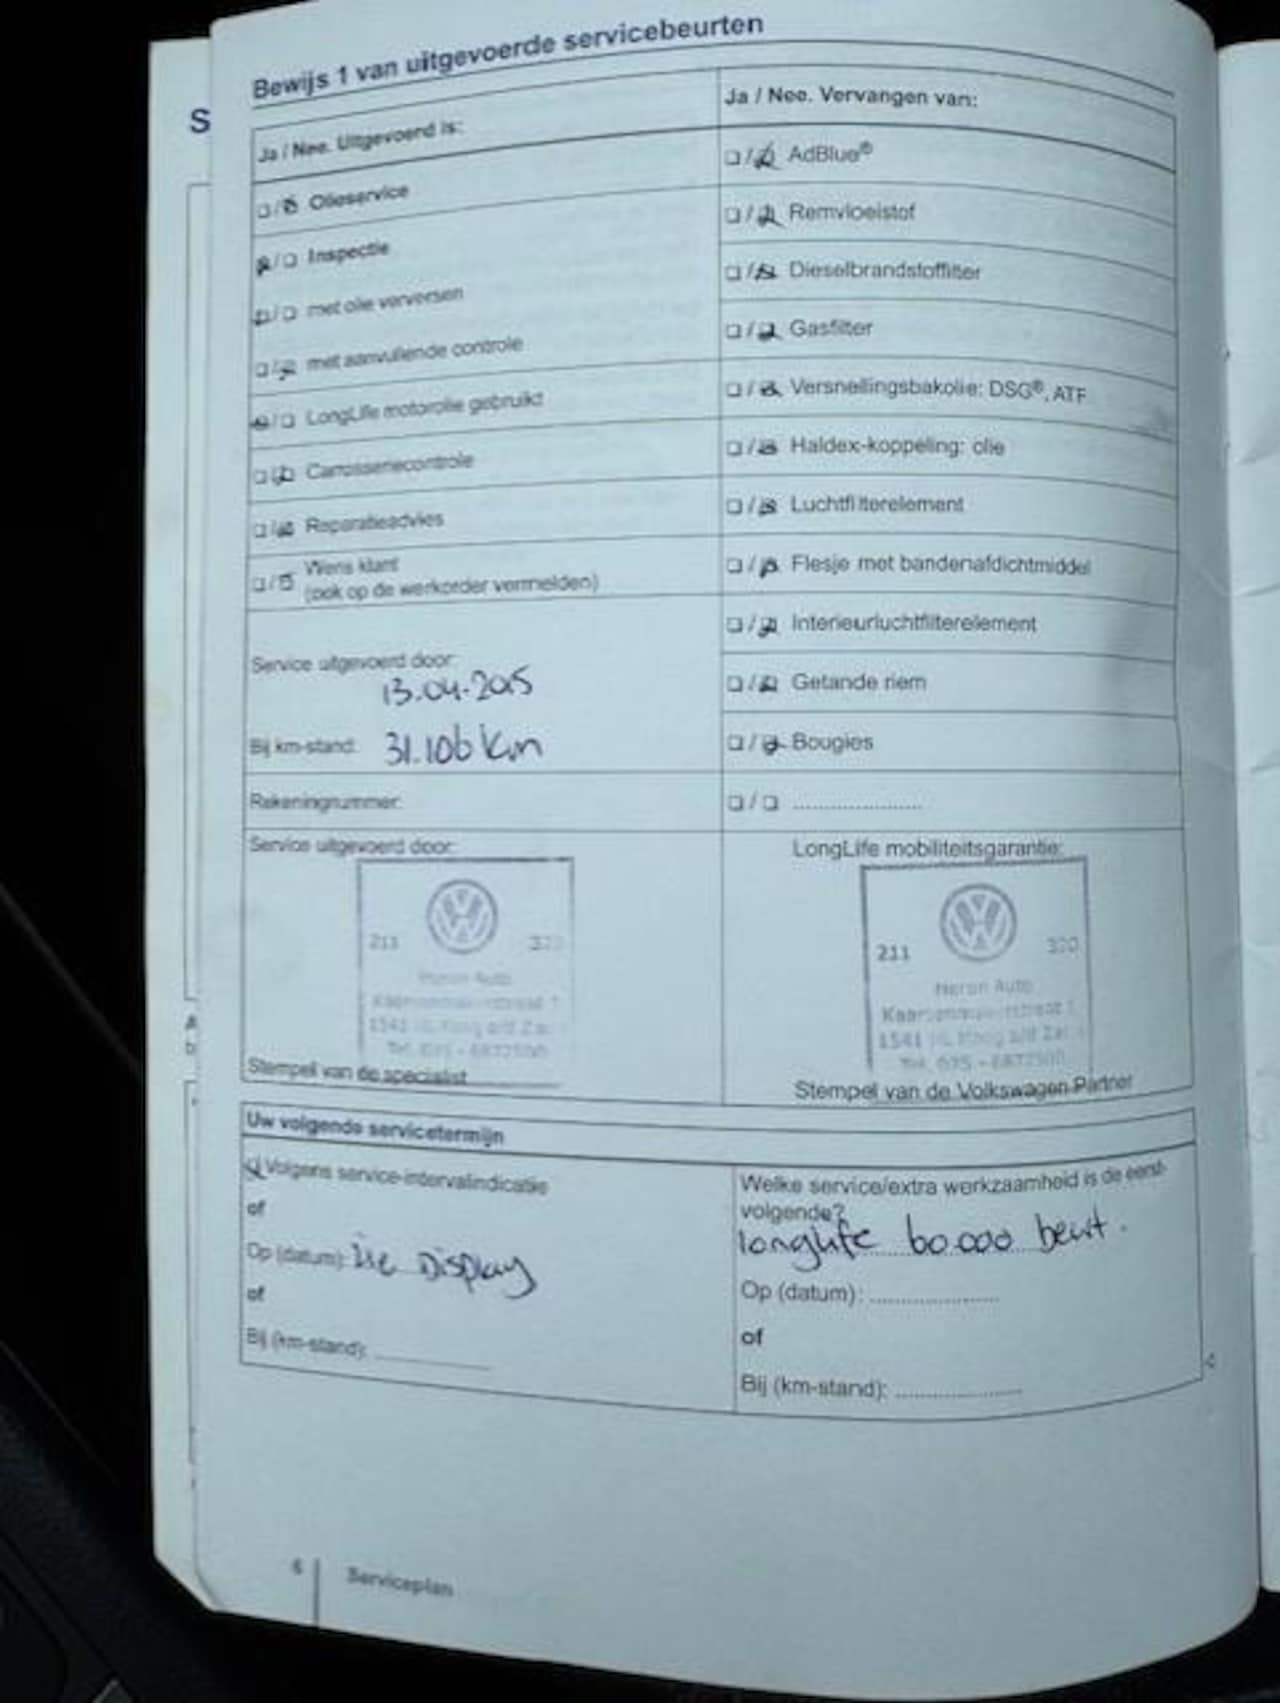 S
Bewijs 1 van uitgevoerde servicebeurten
Ja / Nee. Uitgevoerd is:
Olieservice
Inspectie
met olie verversen
met aanvullende controle
LongLife motorolie gebruikt
Carrosseriecontrole
Reparatieadvies
Wens klant
(ook op de werkorder vermelden)
Service uitgevoerd door:
13.04-2015
Bij km-stand: 31.106 km
Rekeningnummer:
Service uitgevoerd door:
211
Heron Auto
Stempel van de specialist
Ja / Nee. Vervangen van:
AdBlue®
Remvloeistof
Dieselbrandstoffilter
Gasfilter
Versnellingsbakolie: DSG®, ATF
Haldex-koppeling: olie
Luchtfilterelement
Flesje met bandenafdichtmiddel
Interieurluchtfilterelement
Getande riem
Bougies
....................
LongLife mobiliteitsgarantie:
211 320
Heron Auto
1541
Tel. 075 - 6877500
Stempel van de Volkswagen Partner
Uw volgende servicetermijn
Volgens service-intervalindicatie
of
Op (datum): zie Display
of
Bij (km-stand):
Welke service/extra werkzaamheid is de eerst-
volgende?
longlife 60.000 beurt.
Op (datum): ....................
of
Bij (km-stand): ....................
6 Serviceplan